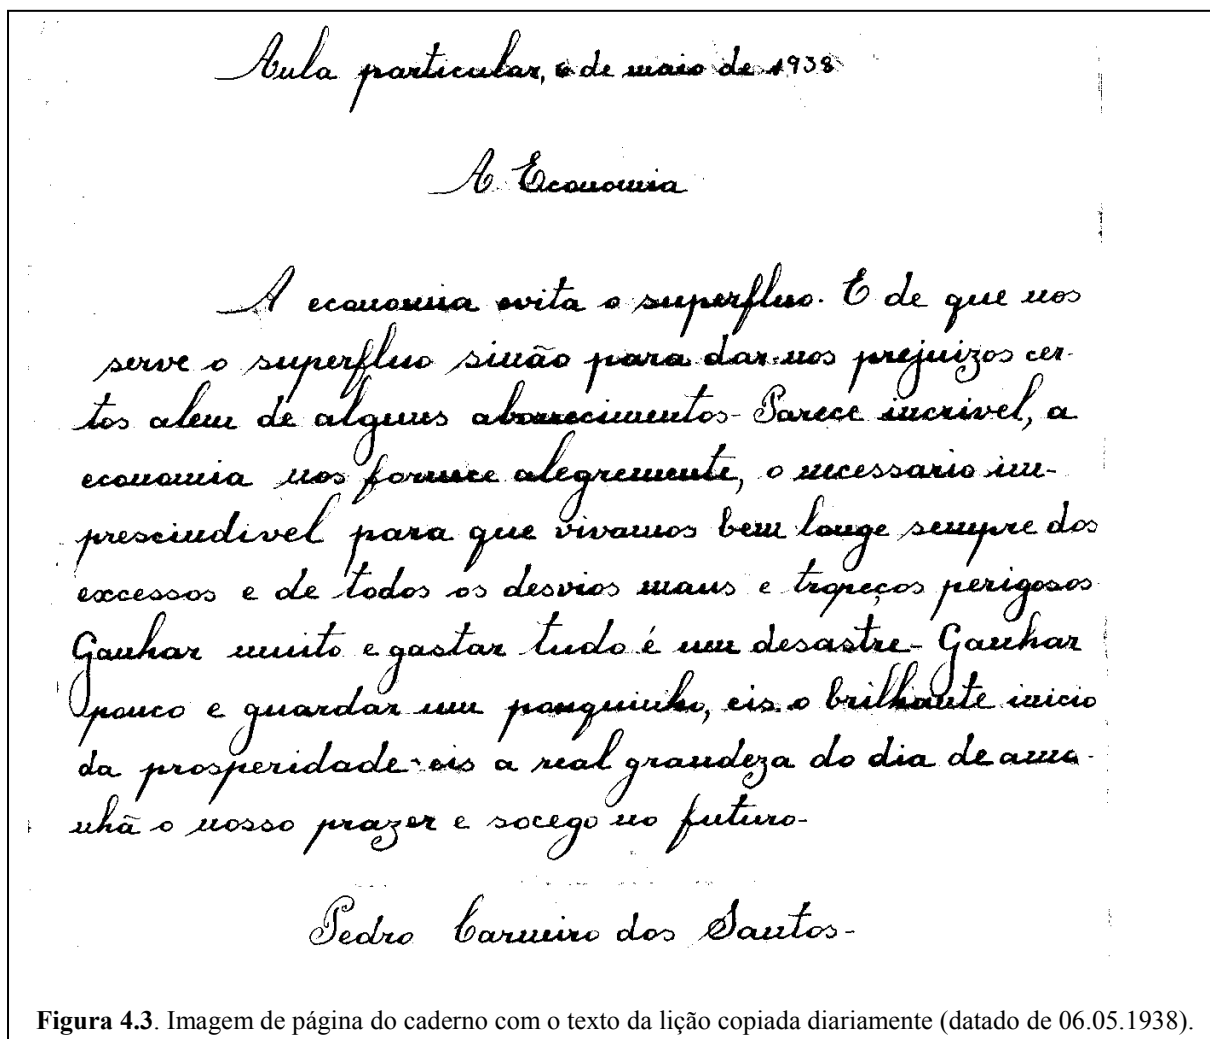 Aula particular, 6 de maio de 1938
A Economia
A economia evita o superfluo. E de que nos
serve o superfluo sinão para dar-nos prejuizos cer-
tos alem de alguns aborrecimentos- Parece incrivel, a
economia nos fornece alegremente, o necessario im-
prescindivel para que vivamos bem longe sempre dos
excessos e de todos os desvios maus e tropeços perigosos
Ganhar muito e gastar tudo é um desastre- Ganhar
pouco e guardar um pouquinho, eis o brilhante inicio
da prosperidade-eis a real grandeza do dia de ama-
nhã o nosso prazer e socego no futuro-
Pedro Carneiro dos Santos-
Figura 4.3. Imagem de página do caderno com o texto da lição copiada diariamente (datado de 06.05.1938).